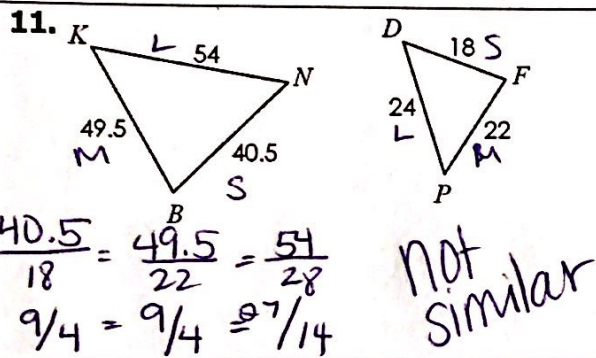 11. K L 54 N
49.5 M
40.5 S
B
D 18 S F
24 L
22 M
P
40.5/18 = 49.5/22 = 54/28
9/4 = 9/4 = 27/14
not
similar